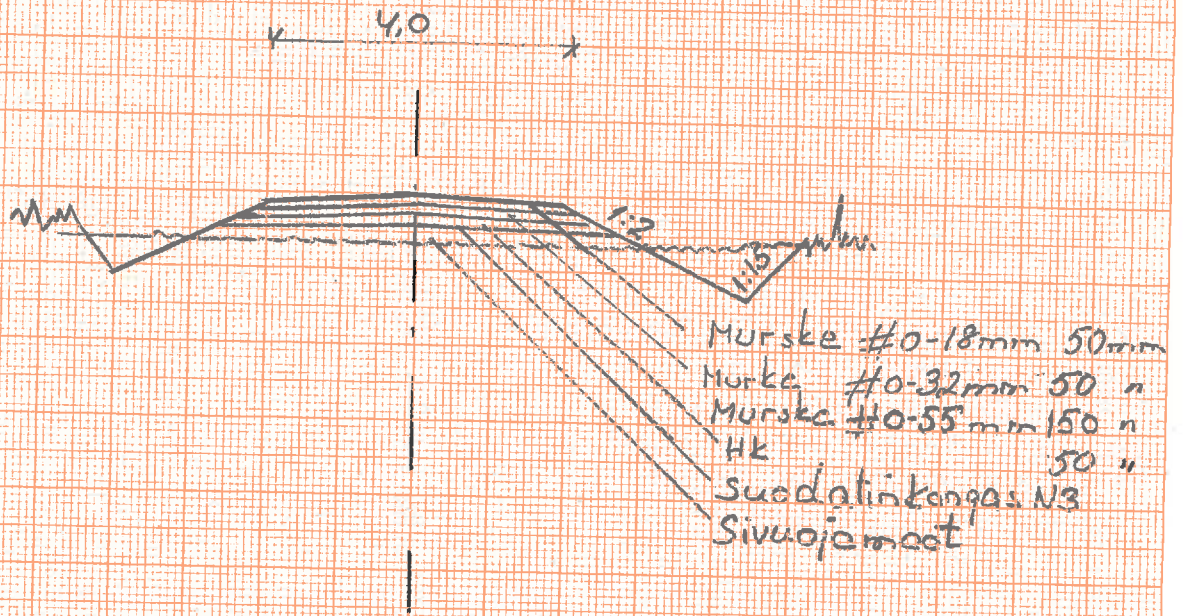 4,0
1:2
1:1,5
Murske #0-18mm 50mm
Murke #0-32mm 50 "
Murske #0-55mm 150 "
Hk 50 "
Suodatinkangas N3
Sivuojamaat